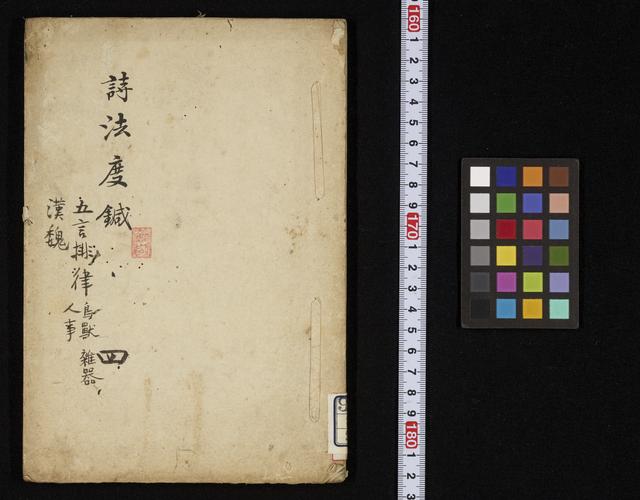 詩法度鍼
四
五言排律
鳥獸 雜器
人事
漢魏
160
1
2
3
4
5
6
7
8
9
170
1
2
3
4
5
6
7
8
9
180
1
2
3